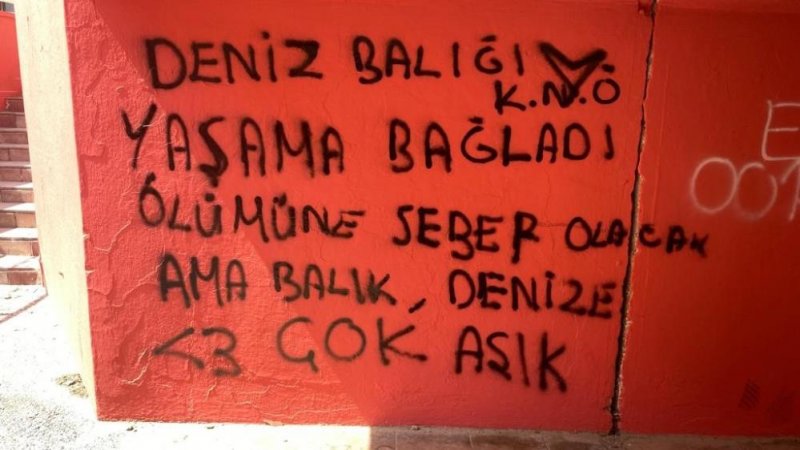 DENİZ BALIĞI
K.N.Ö
YAŞAMA BAĞLADI
ÖLÜMÜNE SEBEP OLACAK
AMA BALIK, DENİZE
<3 ÇOK AŞIK
E
001